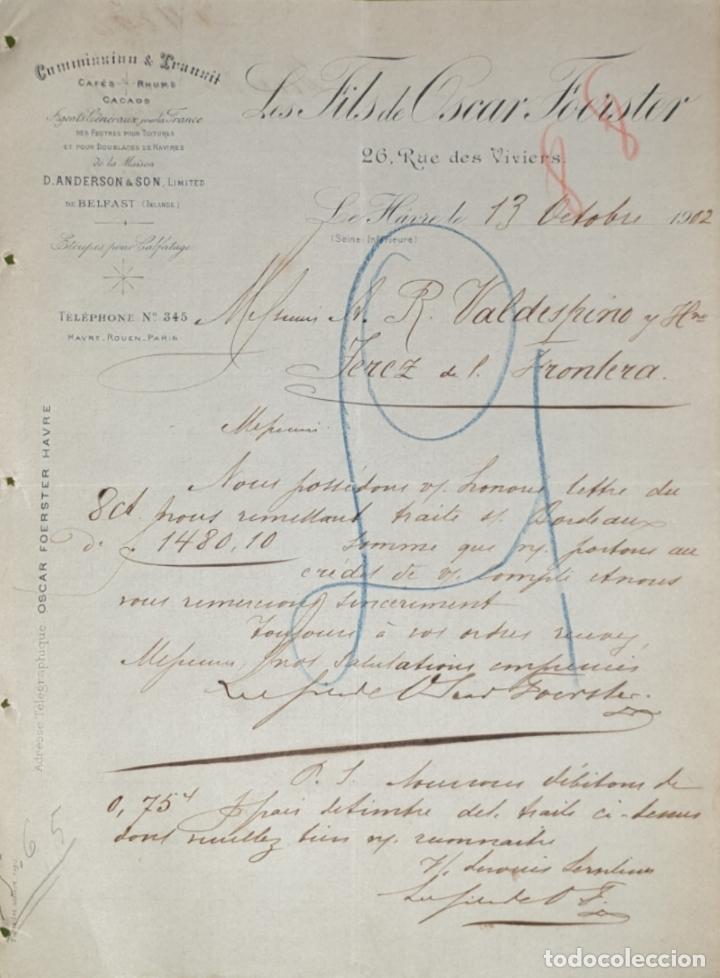 Commission & Transit
CAFÉS RHUMS
CACAOS
Agents Généraux pour la France
DES FEUTRES POUR TOITURES
ET POUR DOUBLAGES DE NAVIRES
de la Maison
D. ANDERSON & SON, LIMITED
DE BELFAST (IRLANDE)
Etoupes pour Calfatage
TÉLÉPHONE Nº 345
HAVRE_ROUEN_PARIS
Les Fils de Oscar Foerster
26, Rue des Viviers.
Le Hâvre le 13 Octobre 1902
(Seine-Inférieure)
Messieurs A. R. Valdespino y Hno
Jerez de l. Frontera.
Messieurs
Nous possédons v/ honorée lettre du
8 ct. nous remettant traite s/ Bordeaux
d. f. 1480,10 somme que n/ portons au
crédit de v/ compte et nous
vous remercions sincèrement
Toujours à vos ordres recevez,
Messieurs, nos salutations empressées
Les fils de Oscar Foerster.
P. S. Nous vous débitons de
0,75 cs frais de timbre de l. traite ci-dessus
dont veuillez bien n/ reconnaître
Les fils de O F.
Adresse Télégraphique OSCAR FOERSTER HAVRE
todocoleccion
todocoleccion.net